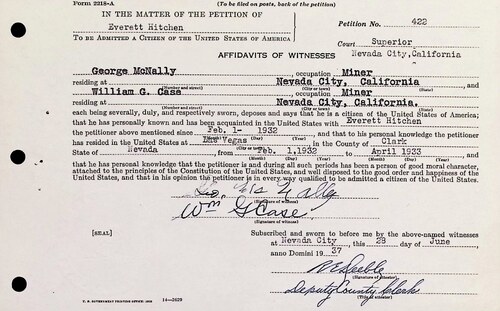 Form 2218-A
(To be filed on posts, back of the petition)
IN THE MATTER OF THE PETITION OF
Petition No. 422
Everett Hitchen
To Be Admitted a Citizen of the United States of America
Court Superior
Nevada City, California
AFFIDAVITS OF WITNESSES
George McNally occupation Miner
residing at Nevada City, California , and
(Number and street) (City or town) (State)
William G. Case occupation Miner
residing at Nevada City, California.
(Number and street) (City or town) (State)
each being severally, duly, and respectively sworn, deposes and says that he is a citizen of the United States of America;
that he has personally known and has been acquainted in the United States with Everett Hitchen
the petitioner above mentioned since Feb. 1- 1932 , and that to his personal knowledge the petitioner
(Month) (Day) (Year)
has resided in the United States at Las Vegas in the County of Clark
(City or town)
State of Nevada , from Feb. 1,1932 to April 1933
(Month) (Day) (Year) (Month) (Day) (Year)
and that he has personal knowledge that the petitioner is and during all such periods has been a person of good moral character,
attached to the principles of the Constitution of the United States, and well disposed to the good order and happiness of the
United States, and that in his opinion the petitioner is in every way qualified to be admitted a citizen of the United States.
Geo. Mc Nally
(Signature of witness)
Wm G Case.
(Signature of witness)
Subscribed and sworn to before me by the above-named witnesses
[SEAL]
at Nevada City , this 28 day of June ,
anno Domini 19 37
(Signature of attestor)
Deputy County Clerk
(Title of attestor)
U. S. GOVERNMENT PRINTING OFFICE 14—2629